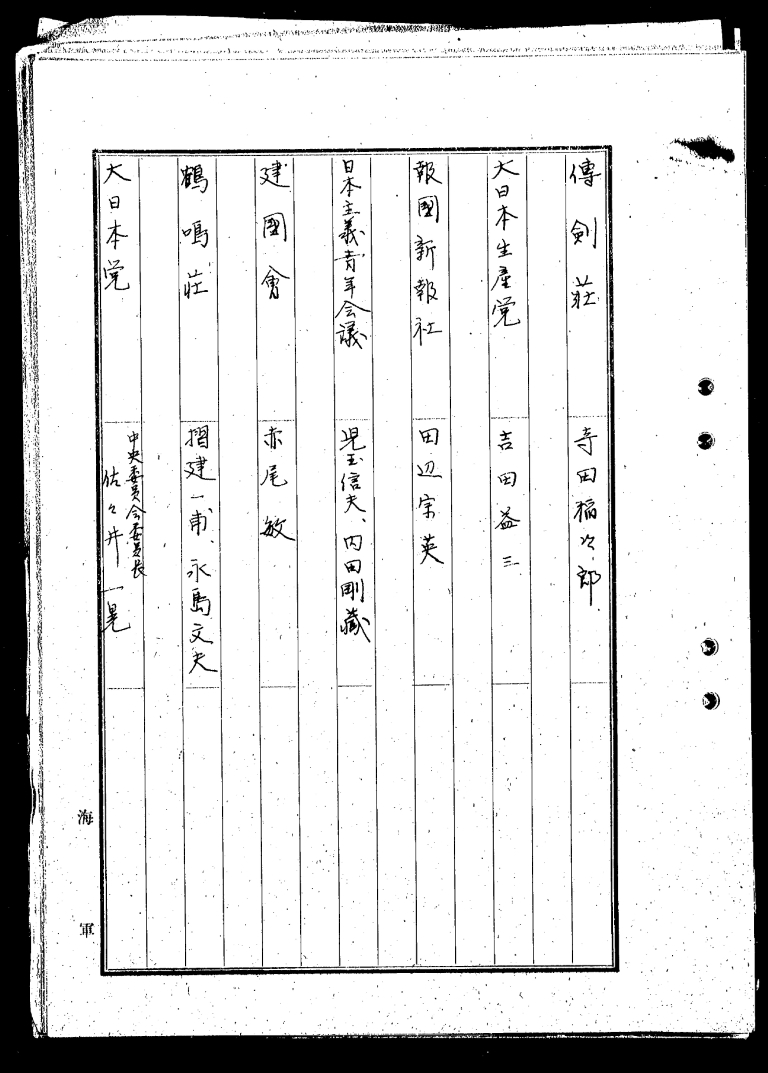 傳剣莊 寺田稲次郎
大日本生產党 吉田益三
報國新報社 田辺宗英
日本主義青年会議 児玉信夫、内田剛藏
建國會 赤尾敏
鶴鳴莊 摺建一甫、永島文夫
大日本党 中央委員会委員長
佐々井一晃
海軍